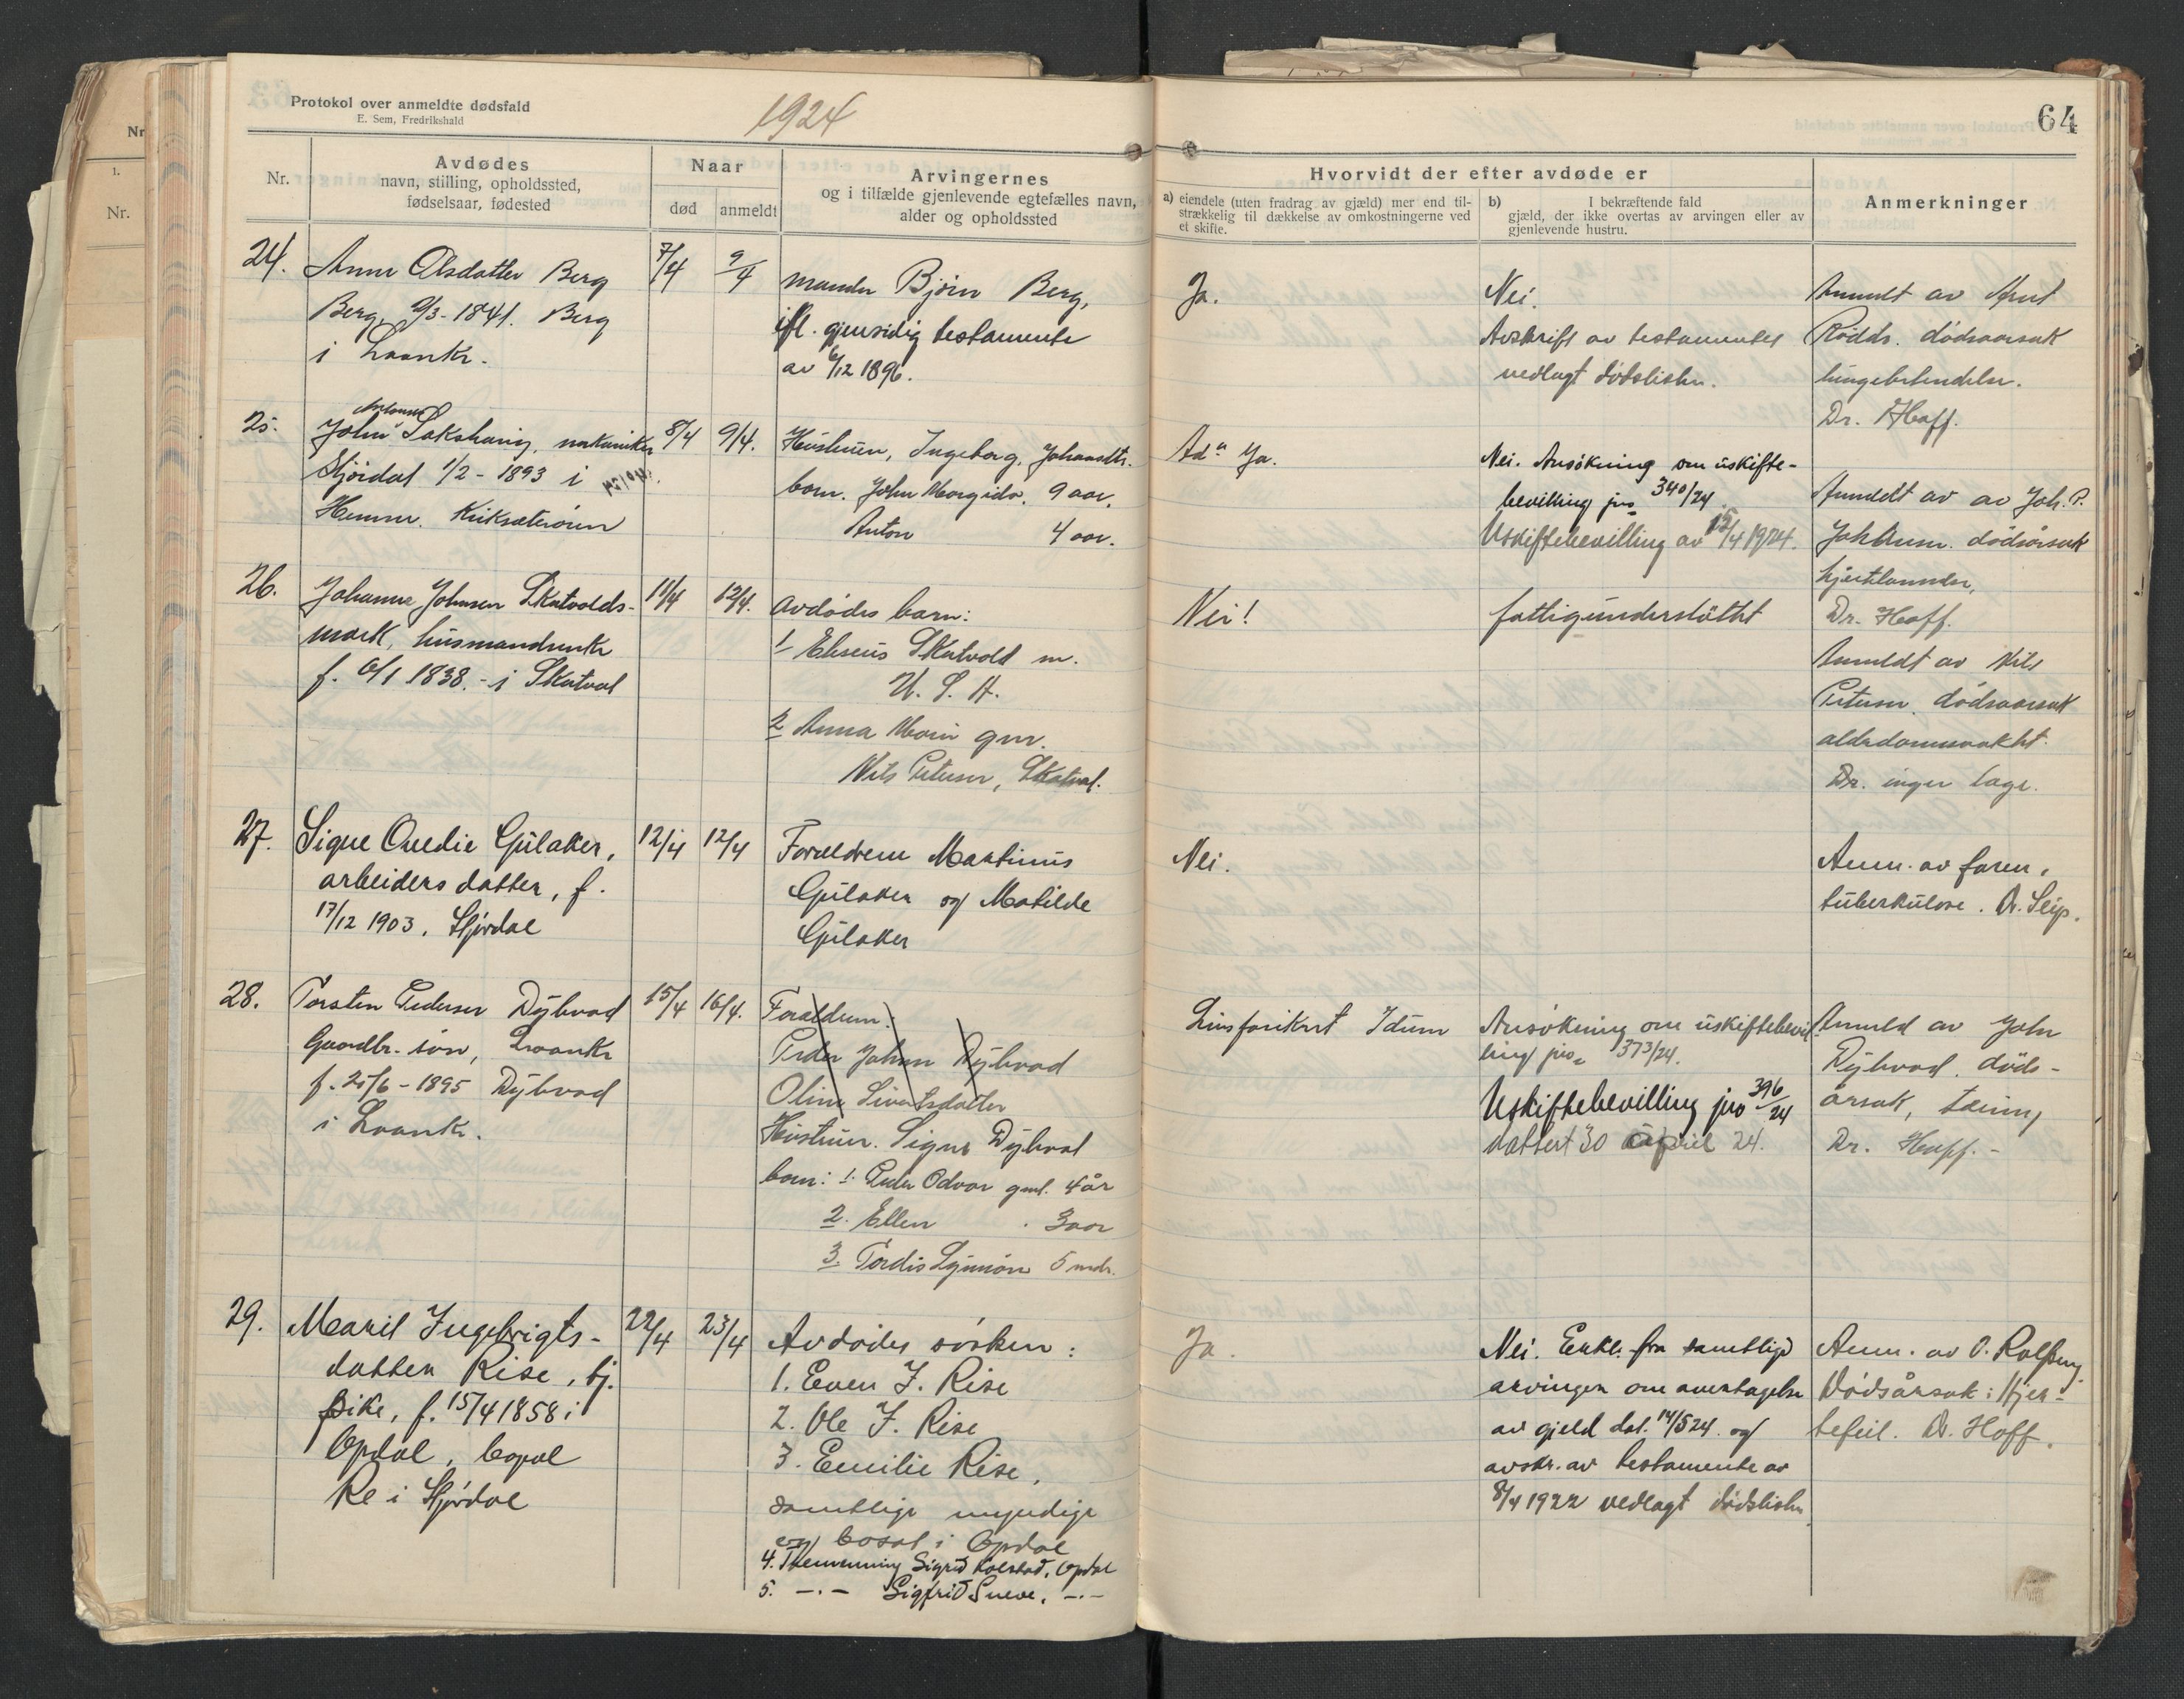 Protokol over anmeldte dødsfald
E. Sem, Fredrikshald
1924
64
Nr.
Avdødes
navn, stilling, opholdssted,
fødselsaar, fødested
Naar
død
anmeldt
Arvingernes
og i tilfælde gjenlevende egtefælles navn,
alder og opholdssted
Hvorvidt der efter avdøde er
a) eiendele (uten fradrag av gjæld) mer end til-
strækkelig til dækkelse av omkostningerne ved
et skifte.
b) I bekræftende fald
gjæld, der ikke overtas av arvingen eller av
gjenlevende hustru.
Anmerkninger
24.
Anne Olsdatter Berg
Berg, 9/3-1841. Berg
i Laanke.
7/4
9/4
manden Bjørn Berg,
ifl. gjensidig testamente
av 6/12 1896.
Ja.
Nei.
Avskrift av testamentet
vedlagt dødslisten.
Anmeldt av Arnt
Rødde. dødsaarsak
lungebetendelse.
Dr. Hoff.
25.
John Sakshaug, mekaniker
Stjørdal 1/2-1893 i
Hemne. Kirksæterøren
8/4
9/4.
Hustruen, Ingeborg Johansdtr.
barn. John Margido. 9 aar.
Anton 4 aar.
Ja.
Nei. Ansøkning om uskifte-
bevilling jno 340/24
Uskiftebevilling av 15/4 1924.
Anmeldt av av Joh. P.
Johansen. dødsårsak
hjertelammelse,
Dr. Hoff.
26.
Johanne Johnsen Skatvolds-
mark, husmandsenke
f. 6/1 1838. - i Skatval
11/4
12/4.
avdødes barn:
1 Eliseus Skatvold m.
U. S. A.
2 Anna Marie gm.
Nils Petersen, Skatval.
Nei!
fattigunderstøttet
Anmeldt av Nils
Petersen. dødsaarsak
alderdomssvakhet.
Dr. ingen læge.
27.
Signe Ovedie Gulaker,
arbeiders datter, f.
17/12 1903. Stjørdal
12/4
12/4
Forældrene Martinus
Gulaker og Matilde
Gulaker
Nei.
Anm. av faren,
tuberkulose. Dr. Seip.
28.
Torsten Pedersen Dybvad
Gaardbr. søn, Laanke
f. 25/6-1895 Dybvad
i Laanke.
15/4
16/4.
Forældrene:
Peder Johnsen Dybvad
Oline Sivertsdatter
Hustruen. Signe Dybvad
barn: 1. Peder Odvar gml. 4 år
2. Ellen . 3 aar
3. Tordis 5 mdr.
Ansøkning om uskiftebevil-
ling jno 373/24.
Uskiftebevilling jno 396/24
datert 30 april 24.
Anmeld av John
Dybvad. døds-
årsak, tæring
Dr. Hoff. -
29.
Marit Ingebrigts-
datter Rise, tj.
pike, f. 15/4 1858 i
Opdal, bopæl
Re i Stjørdal
22/4
23/4
Avdødes søsken:
1. Even J. Rise
2. Ole J. Rise
3. Emilie Rise,
samtlige myndige
og bosat i Opdal
4. Sigrid Kolstad, Opdal
5. -.- Sigfrid Sneve, -.-
Ja.
Nei. Erkl. fra samtlige
arvinger om overtagelse
av gjeld dat. 14/5 24. og
avskr. av testamente av
8/4 1922 vedlagt dødslisten
Anm. av O.
Dødsårsak: Hjer-
tefeil. Dr. Hoff.